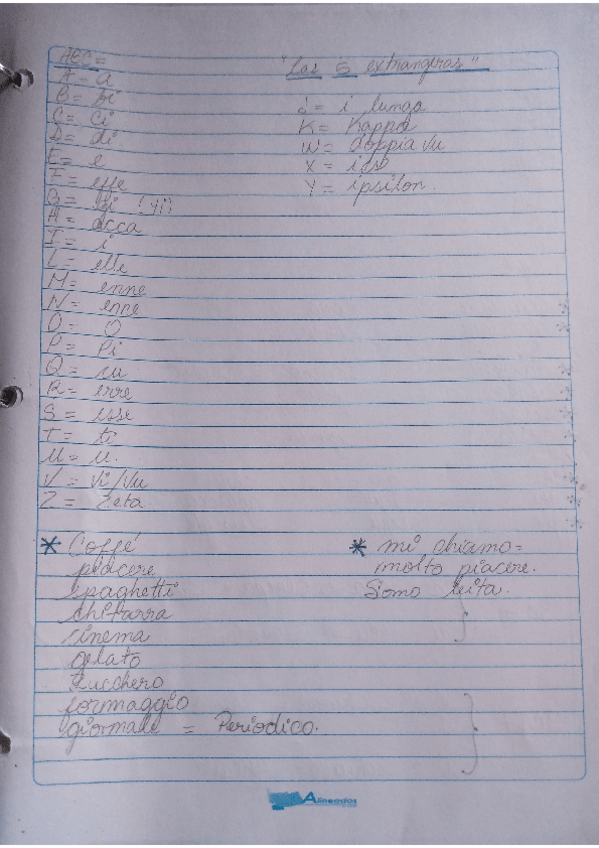 ABC=
A = a
B = bi
C = ci
D = di
E = e
F = effe
G = gi
H = acca
I = i
L = elle
M = enne
N = enne
O = O
P = Pi
Q = cu
R = erre
S = esse
T = ti
U = u.
V = Vi/Vu
Z = Zeta
"Las 5 extrangeras"
J = i lunga
K = Kappa
W = doppia vu
X = ics
Y = ipsilon.
* Coffé
piacere
spaghetti
chitarra
cinema
gelato
Zucchero
formaggio
giornale = Periodico.
* mi chiamo=
molto piacere.
Somo
Alineados